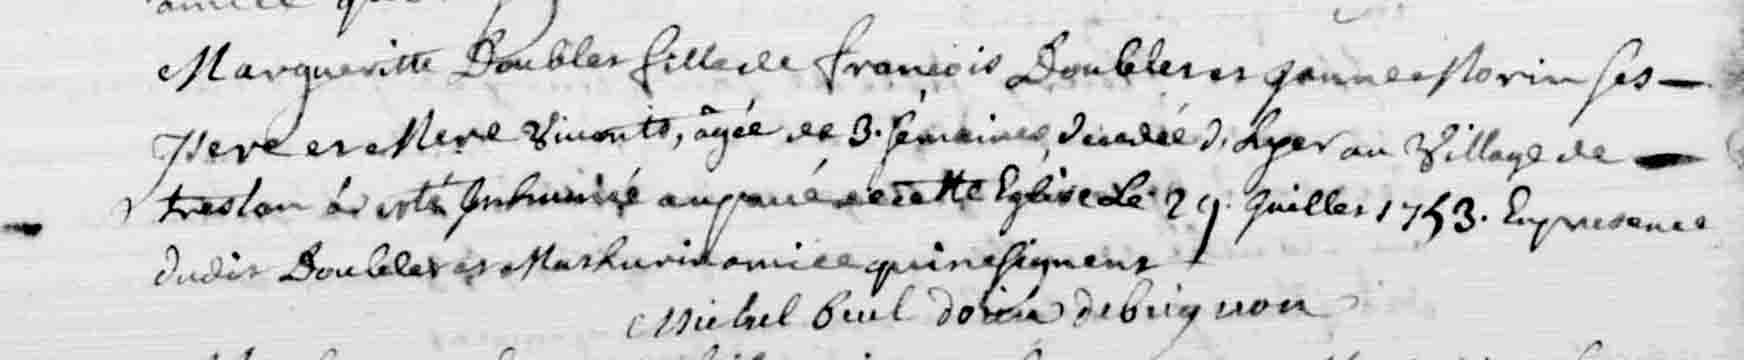 Margueritte Doublet fille de françois Doublet et jeanne Morin ses
Pere et Mere Vivants, âgée de 3. semaines, décédée d'hyer au Village de
treslan a été Inhumée au pavé de cette Eglise Le 29. juillet 1753. En presence
dudit Doublet et Mathurin amice qui ne signent
Michel doien de brignon